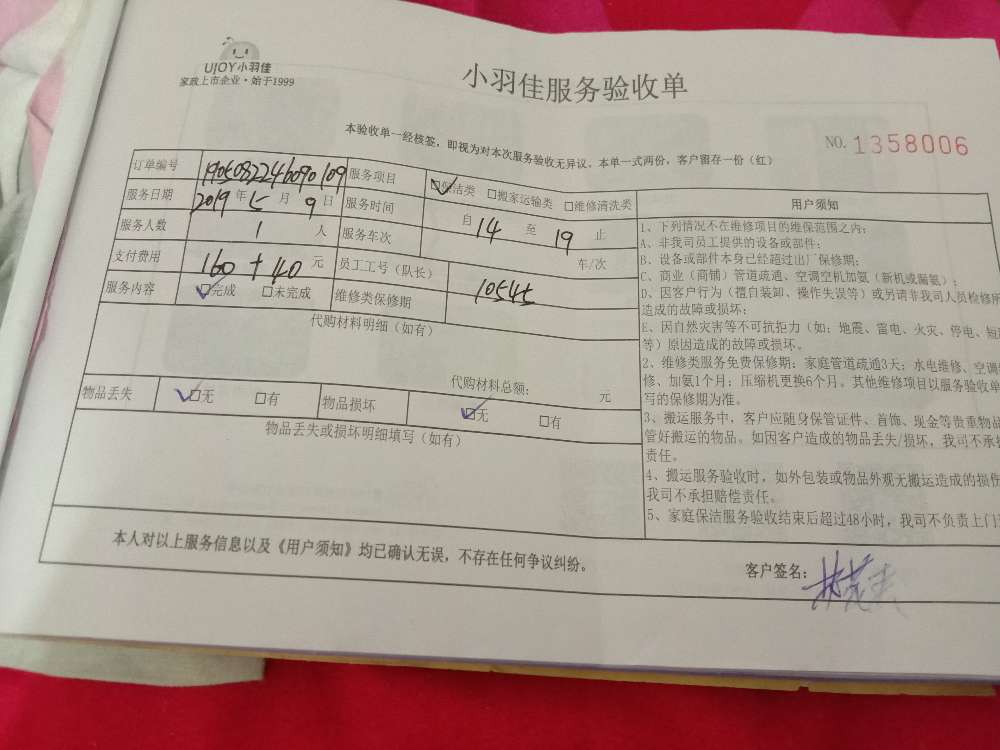 UJOY小羽佳
家政上市企业·始于1999
小羽佳服务验收单
本验收单一经核签，即视为对本次服务验收无异议。本单一式两份，客户留存一份（红）
NO. 1358006
订单编号 1905082246090109 服务项目 保洁类 □搬家运输类 □维修清洗类
服务日期 2019年5月9日 服务时间 自14至19止
服务人数 1人 服务车次 车/次
支付费用 160+40元 员工工号（队长） 10545
服务内容 ☑完成 □未完成 维修类保修期
代购材料明细（如有）
代购材料总额： 元
物品丢失 ☑无 □有 物品损坏 ☑无 □有
物品丢失或损坏明细填写（如有）
用户须知
1、下列情况不在维修项目的维保范围之内：
A、非我司员工提供的设备或部件；
B、设备或部件本身已经超过出厂保修期；
C、商业（商铺）管道疏通、空调空机加氨（新机或漏氨）；
D、因客户行为（擅自装卸、操作失误等）或另请非我司人员检修所
造成的故障或损坏；
E、因自然灾害等不可抗拒力（如：地震、雷电、火灾、停电、短
等）原因造成的故障或损坏。
2、维修类服务免费保修期：家庭管道疏通3天；水电维修、空调
修、加氨1个月；压缩机更换6个月。其他维修项目以服务验收单
写的保修期为准。
3、搬运服务中，客户应随身保管证件、首饰、现金等贵重物品
管好搬运的物品。如因客户造成的物品丢失/损坏，我司不承
责任。
4、搬运服务验收时，如外包装或物品外观无搬运造成的损伤
我司不承担赔偿责任。
5、家庭保洁服务验收结束后超过48小时，我司不负责上门
本人对以上服务信息以及《用户须知》均已确认无误，不存在任何争议纠纷。
客户签名：